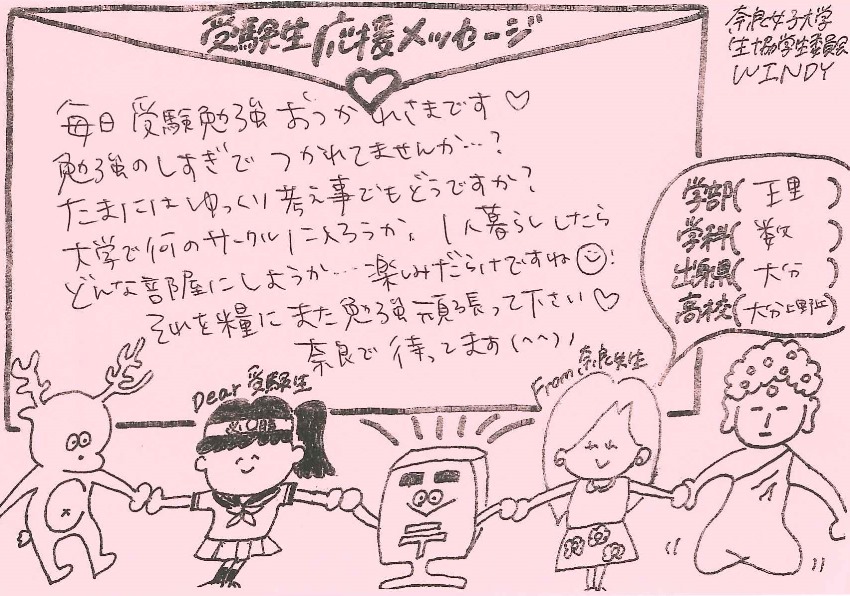 受験生応援メッセージ
奈良女子大学
生協学生委員会
WINDY
毎日 受験勉強 おつかれさまです♡
勉強のしすぎで つかれてませんか…?
たまにはゆっくり考え事でもどうですか?
大学で何のサークルに入ろうか、1人暮らししたら
どんな部屋にしようか…楽しみだらけですね!
それを糧にまた勉強頑張って下さい♡
奈良で待ってます(^^)ノ
学部(理)
学科(数)
出身県(大分)
高校(大分上野丘)
Dear 受験生
From 奈良先生
必勝
〒